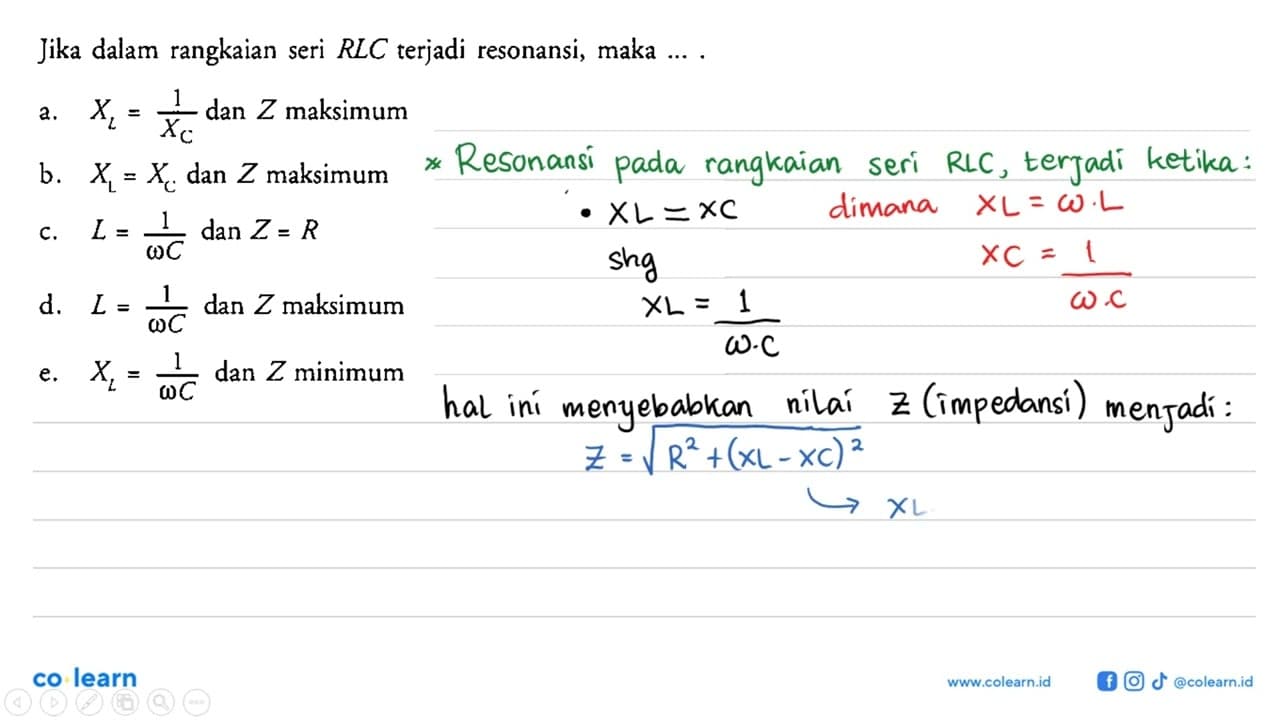 Jika dalam rangkaian seri RLC terjadi resonansi, maka ... .
a. X_L = 1/X_C dan Z maksimum
b. X_L = X_C. dan Z maksimum
c. L = 1/ωC dan Z = R
d. L = 1/ωC dan Z maksimum
e. X_L = 1/ωC dan Z minimum
* Resonansi pada rangkaian seri RLC, terjadi ketika :
• XL = XC dimana XL = ω.L
shg XC = 1/ω.C
XL = 1/ω.C
hal ini menyebabkan nilai Z (impedansi) menjadi :
Z = √R² + (XL - XC)²
↳ XL
co learn
www.colearn.id @colearn.id